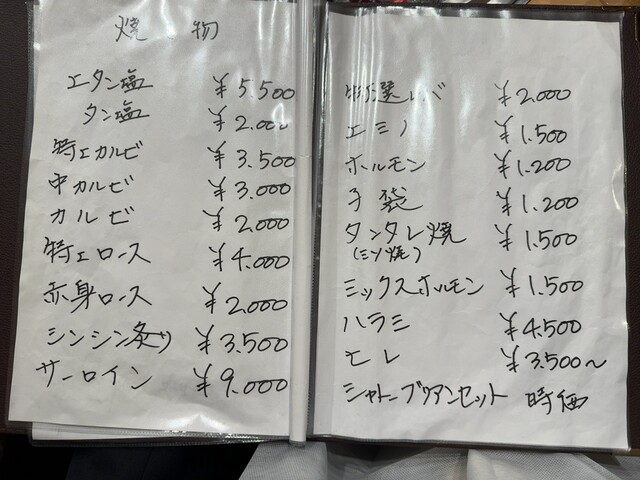 焼 物
上タン塩 ¥5.500
タン塩 ¥2.000
特上カルビ ¥3.500
中カルビ ¥3.000
カルビ ¥2.000
特上ロース ¥4.000
赤身ロース ¥2.000
シンシン炙り ¥3.500
サーロイン ¥9.000
特選レバ ¥2.000
ミノ ¥1.500
ホルモン ¥1.200
子袋 ¥1.200
タンタレ焼 ¥1.500
(ミソ焼)
ミックスホルモン ¥1.500
ハラミ ¥4.500
ヒレ ¥3.500〜
シャトーブリアンセット 時価